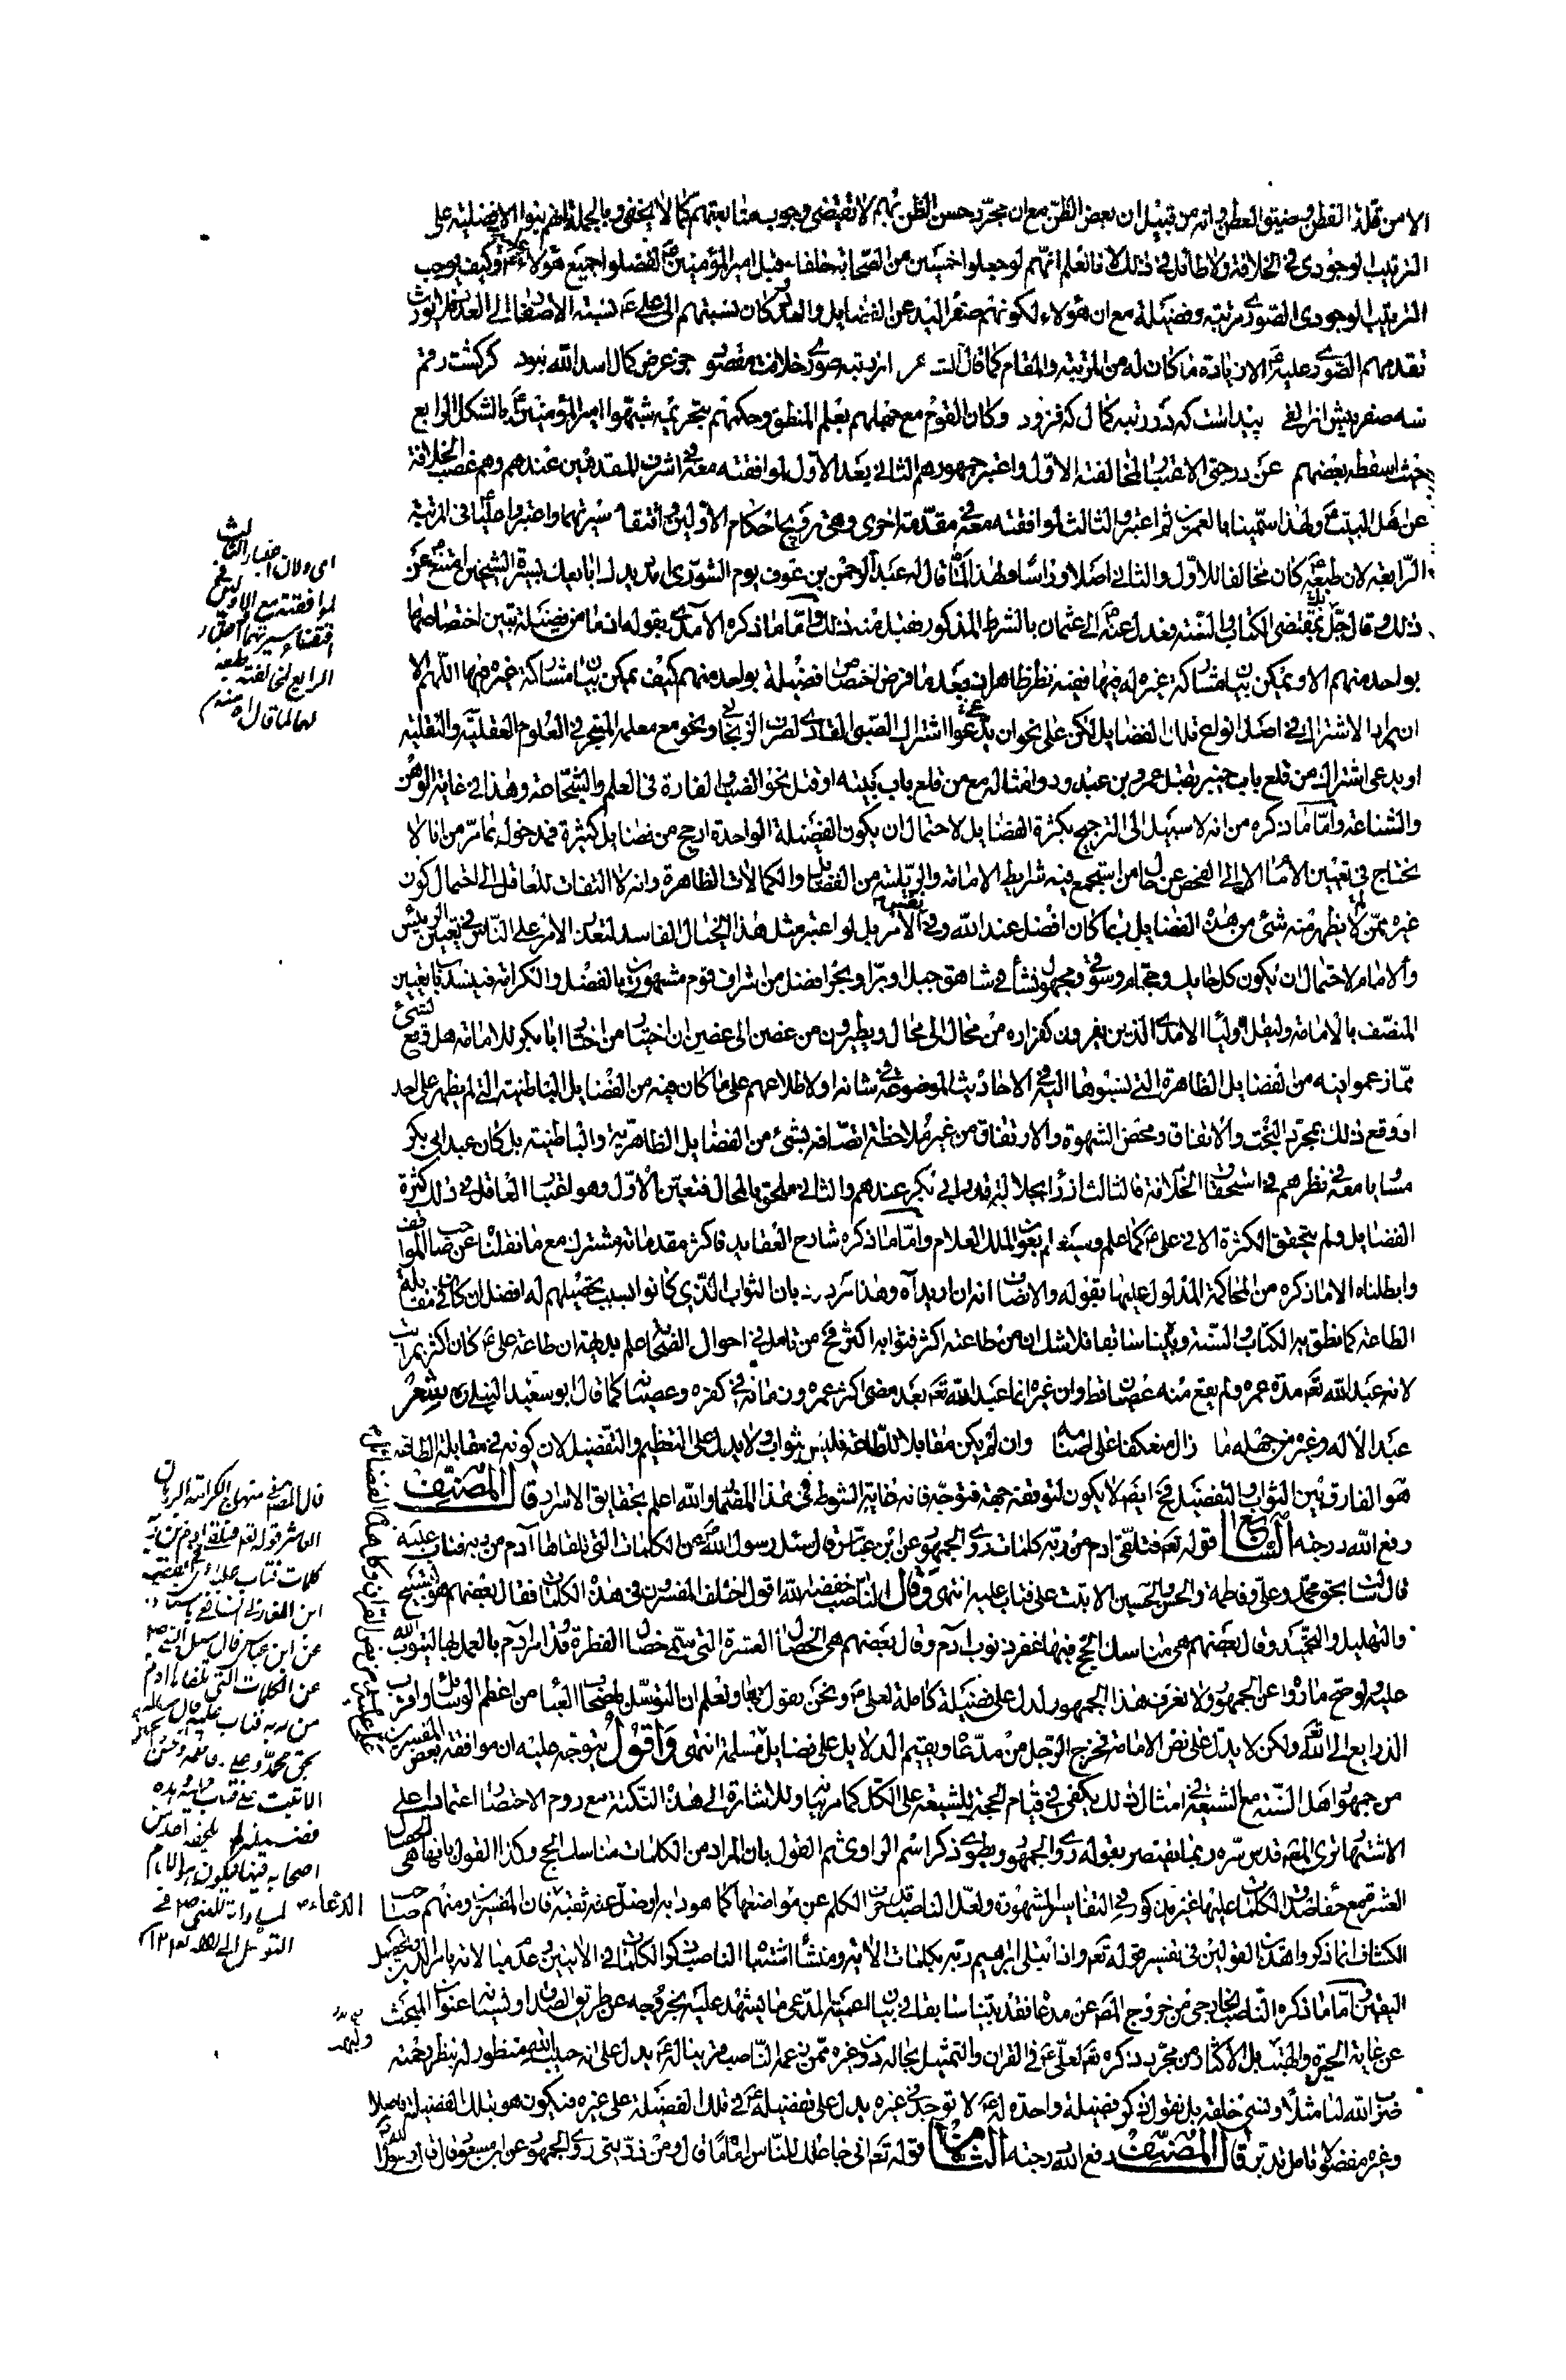 الا من قلة الفطن وضيق العطن وانه من قبيل ان بعض الظن مع ان مجرد حسن الظن بهم لا تقتضي وجوب متابعتهم كما لا يخفى وبالجملة انهم بنوا الافضلية على
الترتيب الوجودي في الخلافة ولا طائل في ذلك لانا نعلم انهم لو جعلوا خمسين من الصحابة خلفاء قبل امير المؤمنين لفضلوا جميع هؤلاء عليه وكيف يوجب
الترتيب الوجودي الصوري مرتبة وفضيلة مع ان هؤلاء لكونهم صفر اليد عن الفضايل والعدد كان نسبتهم الى علي ع نسبة الاصفار الى العدد فلم يورث
تقدمهم الصوري عليه الا زيادة ما كان له من المرتبة والمقام كما قال الشاعر از رتبه صوري خلافت مقصود جز عرض كمال اسد الله نبود كر كشت رقم
سه صفر پيش از الفي پيداست كه در رتبه كمال كه فزود وكان القوم مع جهلهم بعلم المنطق وحكمتهم بتحريمه شبهوا امير المؤمنين بالشكل الرابع
حيث اسقطه بعضهم عن درجتي الاعتبار لمخالفته الاول واعتبر جمهورهم الثاني بعد الاول لموافقته معه في اشرف المقدمتين عندهم وهم غصب الخلافة
عن اهل البيت ع ولهذا سمينا بالعمرين ثم اعتبروا الثالث لموافقته معه في مقدمة اخرى وهي ترويج احكام الاولين واقتفاء سيرتهما واعتبروا عليا في المرتبة
الرابعة لان طبعه كان مخالفا للاول والثاني اصلا وراسا ولهذا لما قال له عبد الرحمن بن عوف يوم الشورى امدد يدك ابايعك بسيرة الشيخين امتنع عن
ذلك وقال بل بمقتضى الكتاب والسنة فعدل عنه الى عثمان بالشرط المذكور فقبل منه ذلك واما ما ذكره الآمدي بقوله انه ما من فضيلة تبين اختصاصها
بواحد منهم الا ويمكن بيان مشاركة غيره له فيها ففيه نظر ظاهر اذ بعد ما فرض اختصاص فضيلة بواحد منهم كيف يمكن بيان مشاركة غيره فيها اللهم الا
ان يراد الاشتراك في اصل انواع تلك الفضايل لكن على نحو ان يدعوا اشتراك الصبي القاري لصرف الزنجاني ونحو مع معلمه المتبحر في العلوم العقلية والنقلية
او يدعى اشتراك من قلع باب خيبر بقتل عمرو بن عبد ود وامثاله مع من قلع باب بيته او قتل نحو الضب والفارة في العلم والشجاعة وهذا في غاية الوهن
والشناعة واما ما ذكره من انه لا سبيل الى الترجيح بكثرة الفضايل لاحتمال ان يكون الفضيلة الواحدة ارجح من فضايل كثيرة فمدخول بما مر من انا لا
نحتاج في تعيين الامام الا الى الفحص عن حال من استجمع فيه شرايط الامامة والرياسة من الفضايل والكمالات الظاهرة وانه لا التفات للعاقل الى احتمال كون
غيره ممن لا يظهر منه شيء من هذه الفضايل ربما كان افضل عند الله وفي نفس الامر بل لو اعتبر مثل هذا الخيال الفاسد لتعذر الامر على الناس في تعيين الرئيس
والامام لاحتمال ان يكون كل حايك وحجام وسوقي ومجهول نشأ في شاهق جبل او برا وبحرا افضل من اشراف قوم مشهورين بالفضل والكرامة فينسد باب تعيين
المتصف بالامامة وليقل اولياء الامدي الذين يفرون كفراره من محال الى محال ويطيرون من غصن الى غصن ان اختيار من اختار ابا بكر للامامة هل وقع لشيء
مما زعموا فيه من الفضايل الظاهرة التي نسبوها اليه في الاحاديث الموضوعة في شانه او لاطلاعهم على ما كان فيه من الفضايل الباطنية التي لم يظهر على احد
او وقع ذلك بمجرد البخت والاتفاق ومحض الشهوة والارتفاق من غير ملاحظة اتصافه بشيء من الفضايل الظاهرية والباطنية بل كان عبد ابي بكر
مساويا معه في نظرهم في استحقاق الخلافة فالثالث ازراء بجلالة قدر ابي بكر عندهم والثاني ملحق بالمحال فتعين الاول وهو اغتيال العاقل في ذلك كثرة
الفضايل ولم يتحقق الكثرة الا في علي ع كما علم وسيعلم بعون الملك العلام واما ما ذكره شارح العقايد فاكثر مقدماته مشترك مع ما نقلنا عن صاحب المواقف
وابطلناه الا ما ذكره من المحاكمة المدلول عليها بقوله والانصاف انه ان اريد آه وهذا مردود بان الثواب الذي كانوا بسبب تحصيلهم له افضل ان كان في مقابلة
الطاعة كما نطق به الكتاب والسنة وبينا سابقا فلا شك ان من طاعته اكثر فثوابه اكثر فح من تامل في احوال الصحابة اعلم بديهة ان طاعة علي ع كان اكثر بمراتب
لانه عبد الله تعالى مدة عمره ولم يقع منه عصيان قط وان غيره انما عبد الله تعالى بعد مضي اكثر عمره وزمانه في كفره وعصيانه كما قال ابو سعيد النيلي ره بشعر
عبد الاله وغيره من جهله ما زال منعكفا على اصنامه وان لم يكن مقابلا للطاعة فليس بثواب ولا يدل على التعظيم والتفضيل لان كونه في مقابلة الطاعة
هو الفارق بين الثواب والتفضل فح ايضا لا يكون لتوقفه جهة فتوجه فانه نهاية الشوط في هذا المقام والله اعلم بحقايق الاسرار قال المصنف
رفع الله درجته السابع قوله تعالى فتلقى ادم من ربه كلمات روى الجمهور عن ابن عباس قال سئل رسول الله ص عن الكلمات التي تلقاها آدم من ربه فتاب عليه
قال سئاله بحق محمد وعلي وفاطمة والحسن والحسين الا تبت علي فتاب عليه انتهى وقال الناصب خفضه الله اقول اختلف المفسرون في هذه الكلمات فقال بعضهم هو التسبيح
والتهليل والتحميد وقال بعضهم هي مناسك الحج فيها غفر ذنوب آدم وقال بعضهم هي الخصال العشرة التي سمى خصال الفطرة وقد امر آدم بالعمل بها ليتوب الله
عليه ولو صح ما رواه عن الجمهور ولا نعرف هذا الجمهور لدل على فضيلة كاملة لعلي ع ونحن نقول بها ونعلم ان التوسل باصحاب العباء من اعظم الوسائل واقرب
الذرايع الى الله تعالى ولكن لا يدل على نص الامامة فخرج الرجل من مدعاه ويقيم الدلايل على فضايل مسلمة انتهى واقول يتوجه عليه ان موافقة بعض المفسرين
من جمهور اهل السنة مع الشيعة في امثال ذلك يكفي في قيام الحجة للشيعة على الكل كما مر بيانه وللاشارة الى هذه النكتة مع روم الاختصار اعتمادا على
الاشتهار ترى المصنف قدس سره ربما يقتصر بقوله روى الجمهور ويطوي ذكر اسم الراوي ثم القول بان المراد من الكلمات مناسك الحج وكذا القول بانها هي الخصال
العشر مع عدم صدق الكلمات عليها غير مذكور في التفاسير المشهورة ولعل الناصب قد حرف الكلم عن مواضعها كما هو دابه اوضل عنه ثقبته فان المفسرين ومنهم صاحب
الكشاف انما ذكروا هذين القولين في تفسير قوله تعالى واذ ابتلى ابراهيم ربه بكلمات الاية ومنشأ اشتباه الناصب ذكر الكلمات في الايتين وعدم مبالاته بامر الدين وتحصيل
اليقين واما ما ذكره الناصب الخارجي من خروج المصنف عن مدعاه فقد بينا سابقا في بيان العمية المدعى ما يشهد عليه بخروجه عن طريق الصدق او نسيانه عنوان المبحث
عن غاية الحيرة والبهت بل لا كثار من مجرد ذكره تعالى لعلي ع في القران والتمثيل بحاله دون غيره ممن زعمه الناصب قرينا له ع يدل على انه حبيب الله منظور له بنظر رحمته
ضرب الله لنا مثلا ونسي خلقه بل نقول ذكر فضيلة واحدة له ع لا توجد في غيره يدل على تفضيله ع في تلك الفضيلة على غيره فيكون هو بتلك الفضيلة فاضلا
وغيره مفضولا تامل تدبر قال المصنف رفع الله درجته الثامن قوله تعالى اني جاعلك للناس اماما قال ومن ذريتي روى الجمهور عن ابن مسعود قال قال رسول الله
اي ولان اختيار الثالث
لموافقته مع الاولين في
اقتفاء سيرتهما اخر
الرابع لمخالفته بطبعه
لهما لما قال اه منه
قال المصنف في منهاج الكرامة البرهان
العاشر قوله تعالى فتلقى ادم من ربه
كلمات فتاب عليه روى الفقيه
ابن المغازلي الشافعي باسناده
عن ابن عباس قال سئل النبي ص
عن الكلمات التي تلقاها ادم
من ربه فتاب عليه قال سئاله
بحق محمد وعلي وفاطمة وحسن
الا تبت علي فتاب عليه وهذه
فضيلة لم يلحقه احد من
اصحابه فيها فيكون هو الامام
لمساواته للنبي ص في
التوسل الى الله تعالى
الدعاء